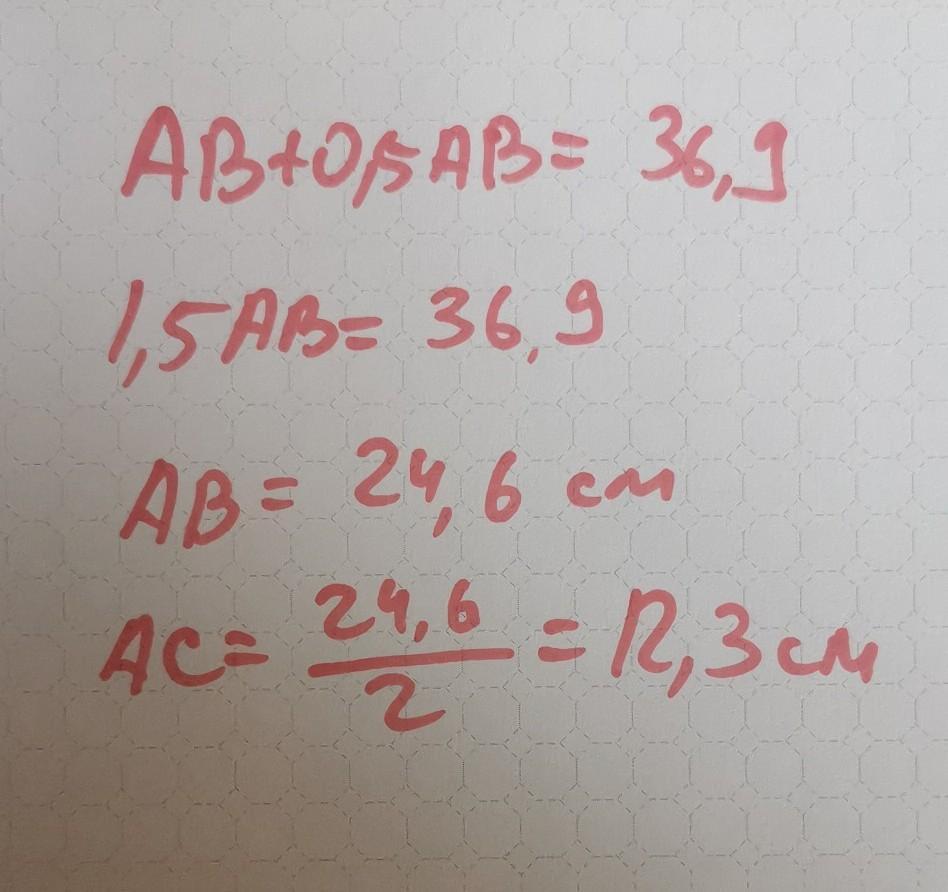 AB+0,5AB= 36,9
1,5AB= 36,9
AB= 24,6 см
AC= 24,6/2 = 12,3 см